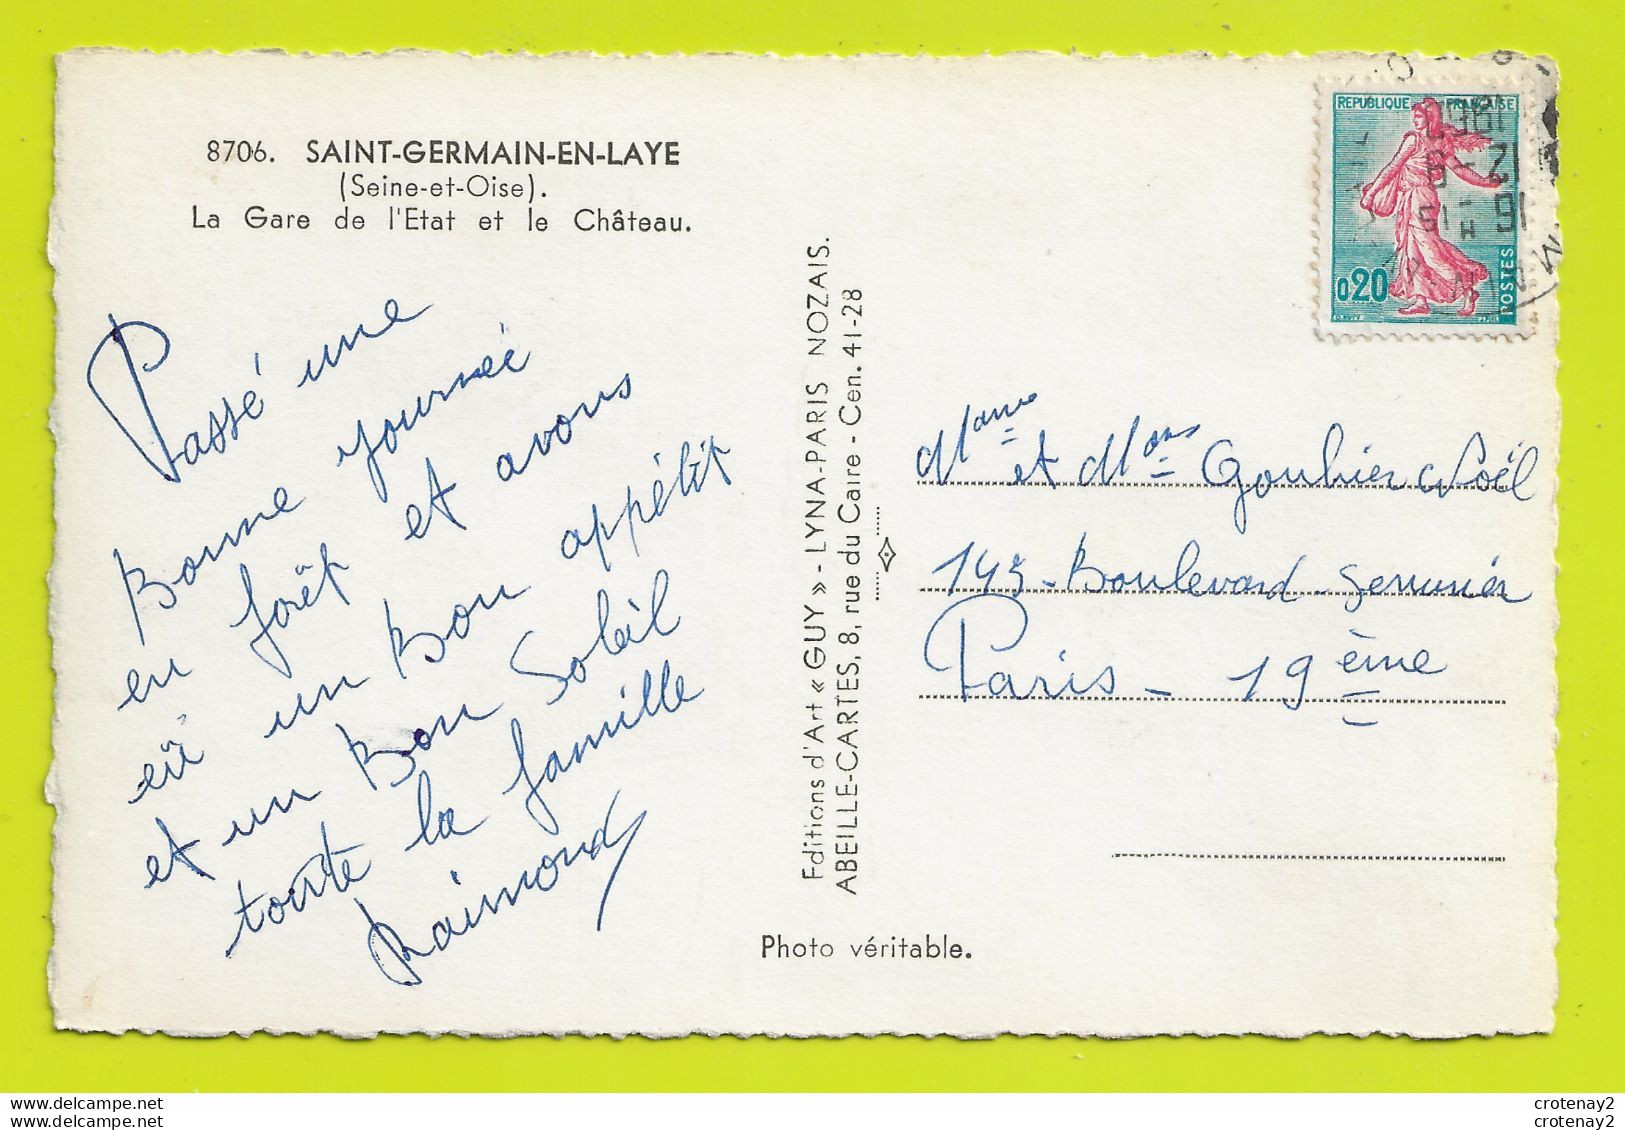 8706. SAINT-GERMAIN-EN-LAYE
(Seine-et-Oise).
La Gare de l'Etat et le Château.
Passé une
Bonne journée
en forêt et avons
eü un Bon appétit
et un Bon Soleil
toute la famille
Raimond
Editions d'Art « GUY » - LYNA-PARIS NOZAIS.
ABEILLE-CARTES, 8, rue du Caire - Cen. 41-28
Photo véritable.
REPUBLIQUE FRANÇAISE
0,20
POSTES
16 H 15
12 - 9
1960
Mame et Mons Gouhier Noël
143 - Boulevard - Serrurier
Paris - 19 ème
www.delcampe.net
www.delcampe.net
crotenay2
crotenay2